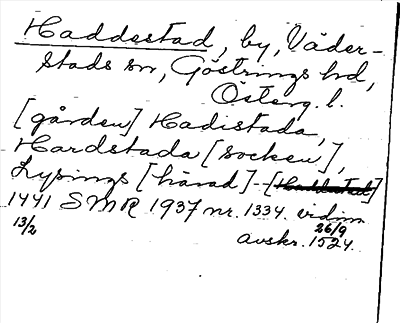 Haddestad, by, Väder-
stads sn, Göstrings hd,
Österg. l.
[gården] Hadistada,
Hardstada [socken],
Lysings [härad] [Haddestad]
1441 SMR 1937 nr. 1334. vidim
13/2 26/9
avskr. 1524.